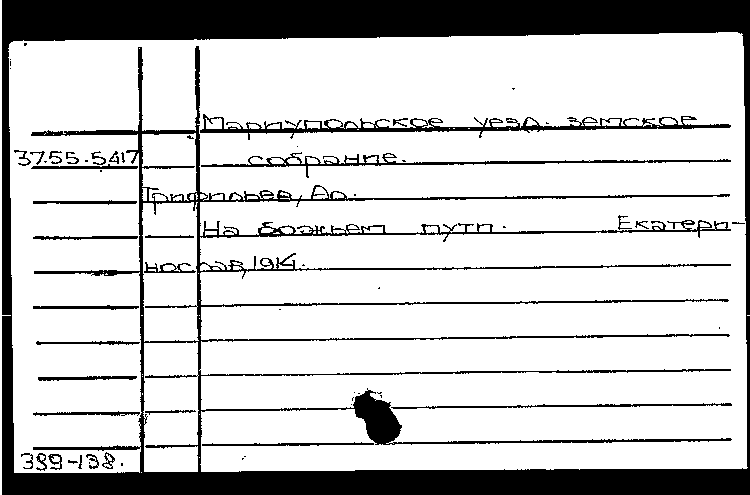 Мариупольское уезд. земское
37.55.5417 собрание.
Трифильев, Ал.
На божьем пути. Екатери-
нослав, 1914.
389-138.